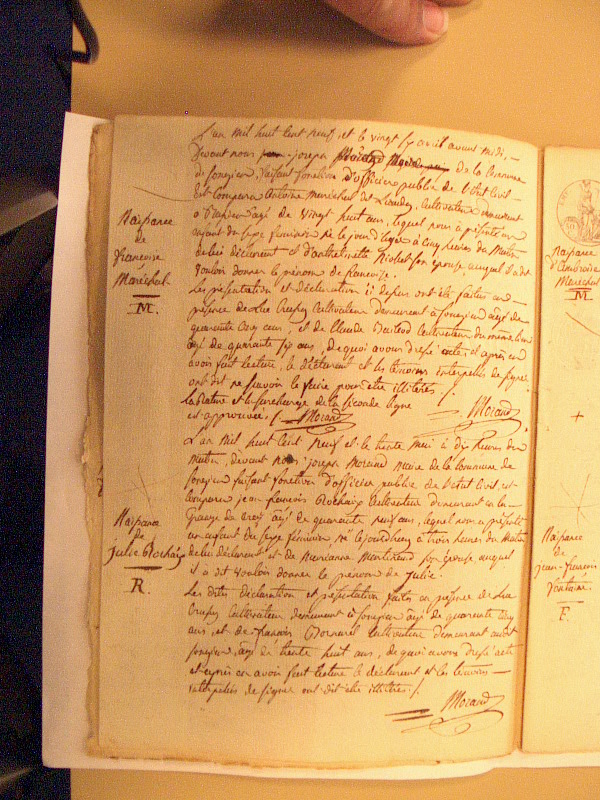 L'an mil huit cent neuf, et le vingt six avril avant midi,
Devant nous joseph Morand Maire de la Commune
de songieu, faisant fonction d'officier public de l'état Civil
Est Comparu Antoine Maréchal de Cultivateur demeurant
âgé de vingt huit ans, lequel nous a présenté un
enfant du sexe féminin né le jourd'huy à Cinq heures du Matin
de lui déclarant et d'anthelmette son épouse auquel il a dit
vouloir donner le prénom de francoise.
Les présentation et Déclaration ci dessus ont été faites en
présence de Cultivateur demeurant à songieu âgé de
quarante Cinq ans, et de Claude Cultivateur du même lieu
âgé de quarante six ans, de quoi avons dressé acte, et après en
avoir fait lecture, le déclarant et les temoins interpellés de signer
ont dit ne savoir le faire pour être illiterés /.
la Rature et surcharge de la seconde ligne
est approuvée. / Morand Morand
Naissance
de
francoise
Maréchal
M.
L'an Mil huit Cent Neuf et le trente Mai à dix heures du
Matin, devant Nous joseph Morand Maire de la Commune de
songieu faisant fonction d'officier public de l'état Civil, est
Comparu jean francois Rochaix Cultivateur demeurant en la
Grange du âgé de quarante neuf ans, lequel nous a présenté
un enfant du sexe féminin né le jourd'huy à trois heures du Matin
de lui déclarant et de Marianne son épouse auquel
il a dit vouloir donner le prénom de julie.
Les dites déclaration et présentation faites en présence de
Cultivateur, demeurant à songieu âgé de quarante Cinq
ans, et de francois Cultivateur demeurant audit
songieu, âgé de trente huit ans, de quoi avons dressé acte
et après en avoir fait lecture le déclarant et les temoins
interpellés de signer ont dit être illiterés /.
Morand
Naissance
de
julie Rochaix
R.
Naissance
d'Ambroise
Maréchal
M.
Naissance
de
jean-francois
F.